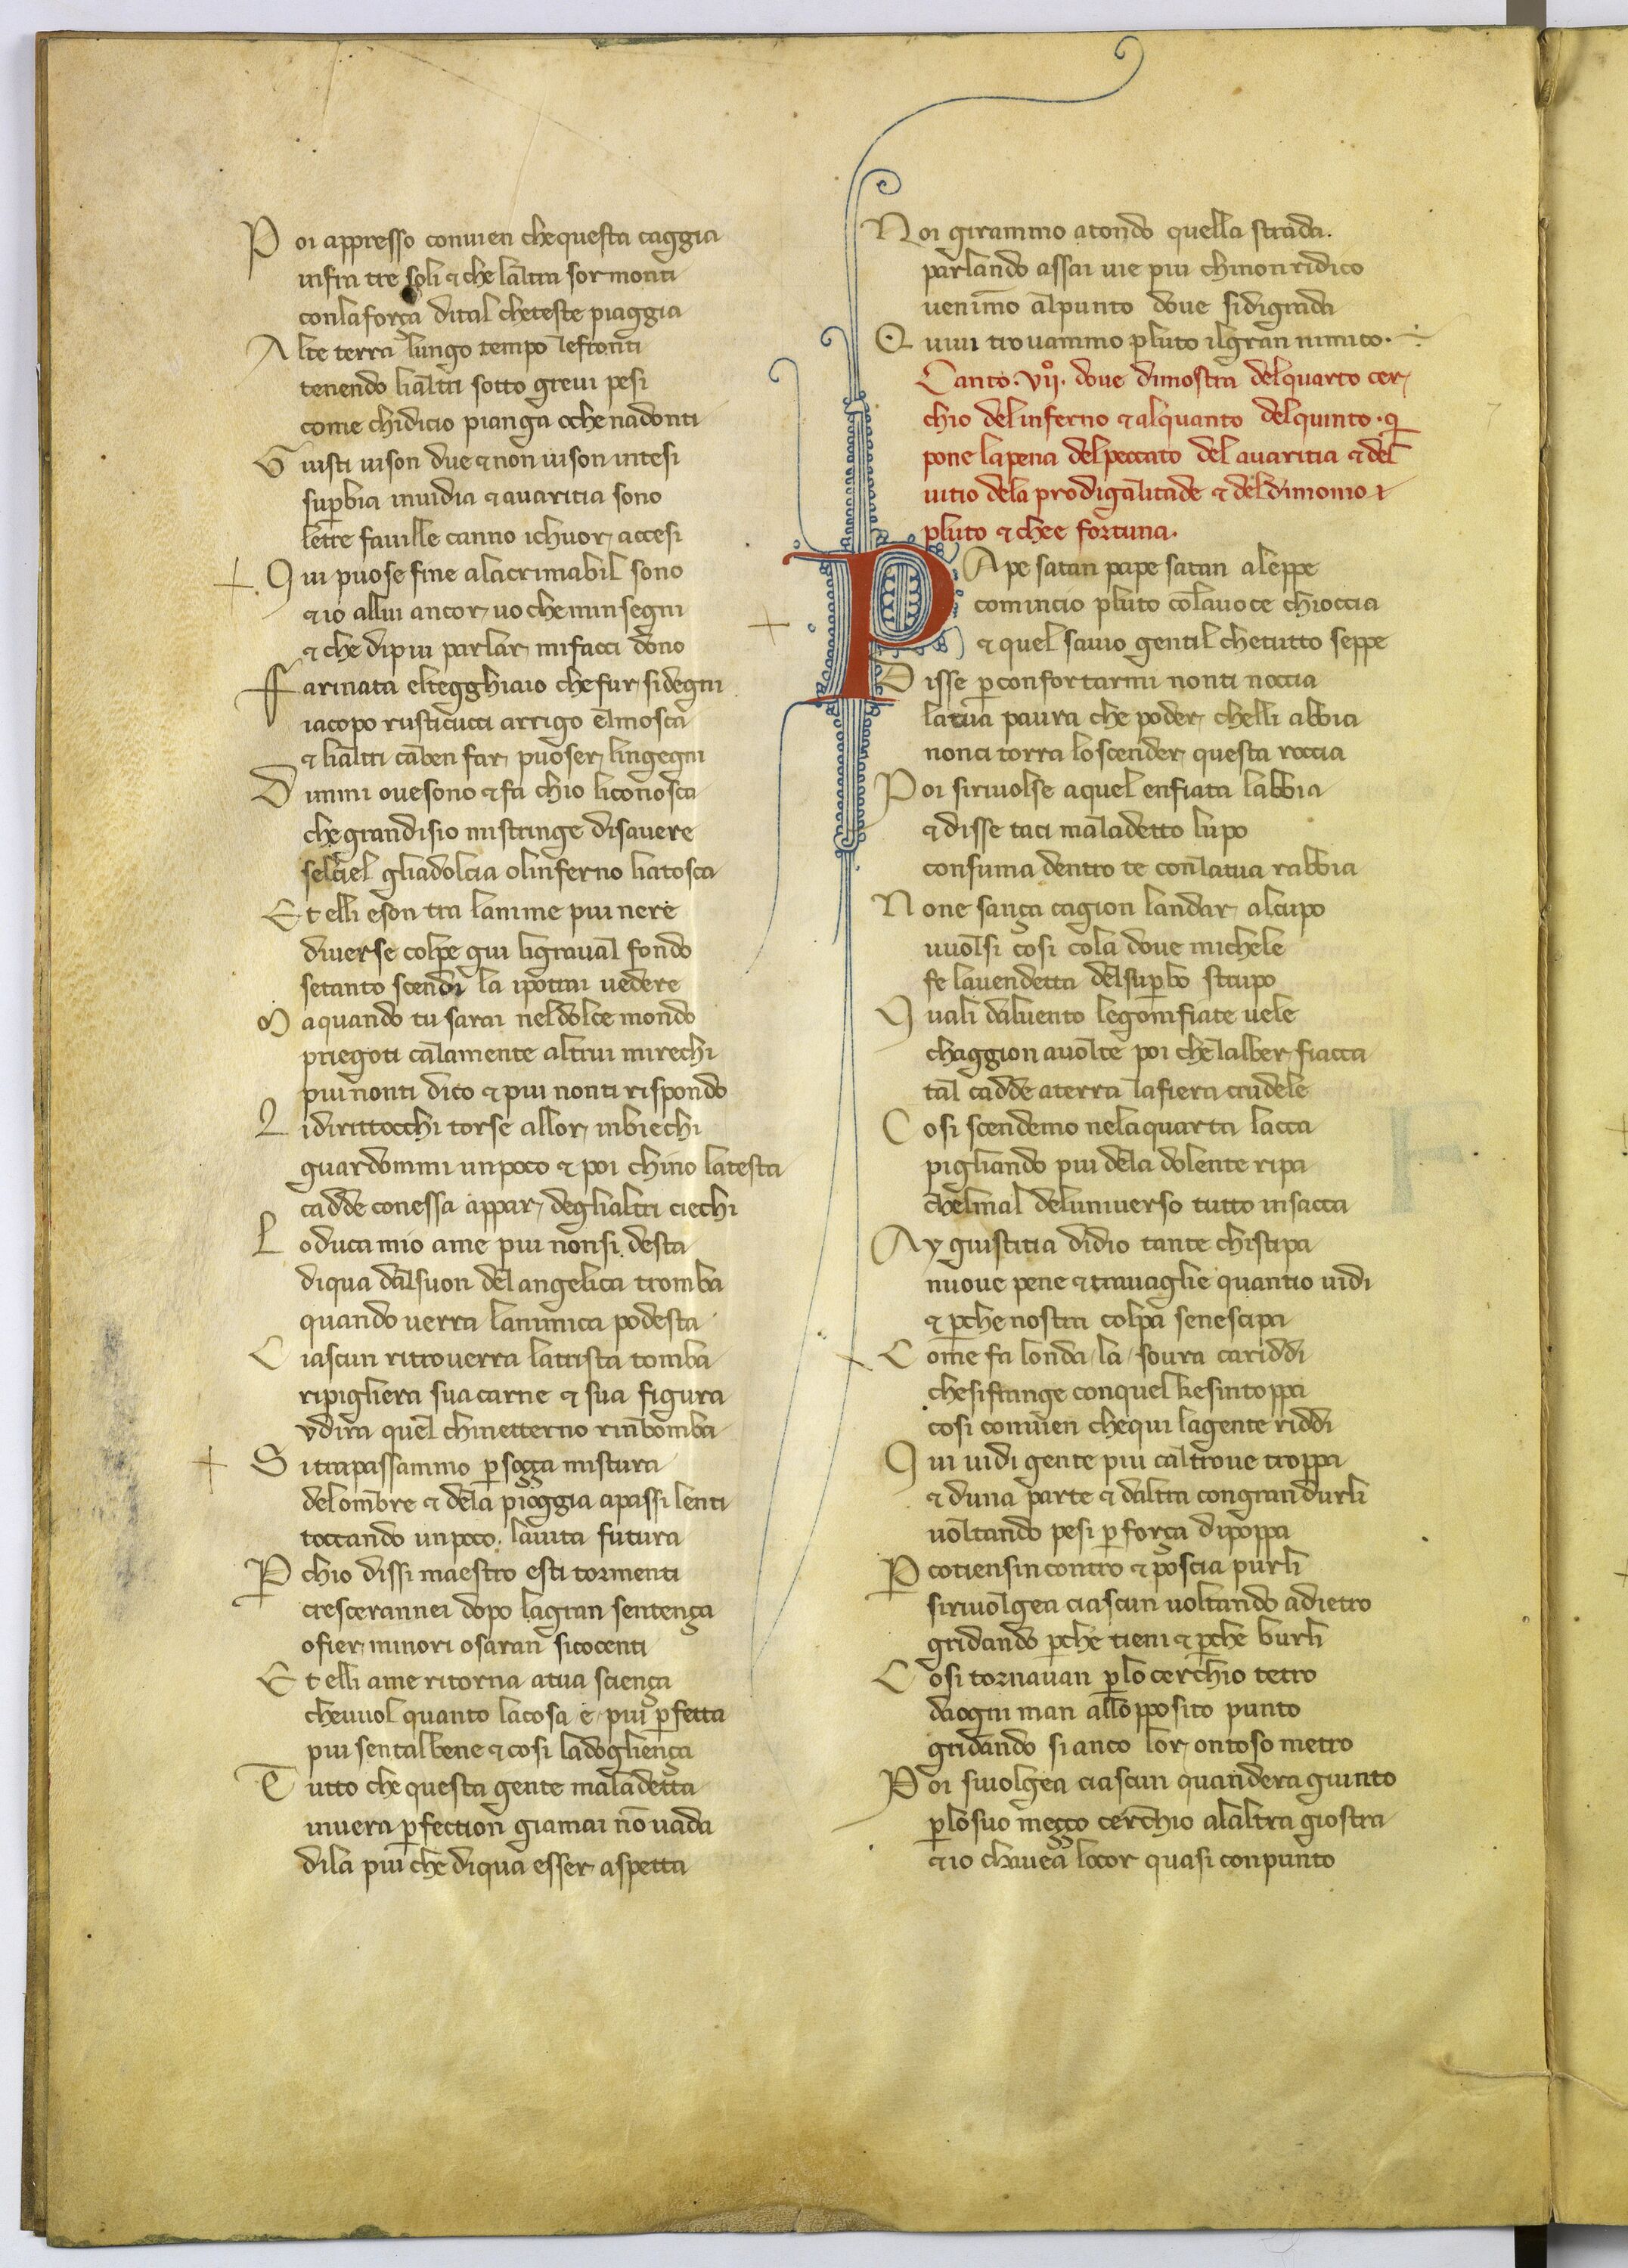 Poi appresso conuien chequesta caggia
infra tre soli & che laltra sormonti
conlaforça dital cheteste piaggia
Alte terra lungo tempo lefronti
tenendo lialtri sotto greui pesi
come chidicio pianga oche nadonti
Giusti uison due & non uison intesi
suꝑbia inuidia & auaritia sono
letre fauille canno ichuor accesi
Qui puose fine alacrimabil sono
& io allui ancor uo che minsegni
& che dipiu parlar mifacci dono
Farinata eltegghiaio che fur sidegni
iacopo rusticucci arrigo elmosca
& lialtri caben far puoser lingegni
Dimmi ouesono & fa chio liconosca
che grandisio mistringe disauere
selciel gliadolcia olinferno liatosca
Et elli eson tra lanime piu nere
diuerse colpe giu ligraual fondo
setanto scendi la ipotrai uedere
Ma quando tu sarai neldolce mondo
priegoti calamente altrui mirechi
piu nonti dico & piu nonti rispondo
Lidirittocchi torse allor inbiechi
guardommi unpoco & poi chino latesta
cadde conessa appar deglialtri ciechi
Loduca mio ame piu nonsi desta
diqua dalsuon del angelica tromba
quando uerra lanimica podesta
Ciascun ritrouerra latrista tomba
ripigliera sua carne & sua figura
vdira quel chinetterno rinbomba
Si trapassammo ꝑ soçça mistura
delombre & dela pioggia apassi lenti
toccando unpoco lauita futura
Ꝑchio dissi maestro esti tormenti
crescerannei dopo lagran sentença
ofier minori osaran sicocenti
Et elli ame ritorna atua sciença
cheuuol quanto lacosa e piu ꝑfetta
piu sentalbene & cosi ladogliença
Tutto che questa gente maladetta
inuera ꝑfection giamai nō uada
dila piu che diqua esser aspetta
Noi girammo atondo quella strada.
parlando assai uie piu chinonridico
uenimo alpunto doue sidigrada
Quiui trouammo pluto ilgran nimico.
Canto. VIIº. doue dimostra delquarto cer
chio delinferno & alquanto delquinto. q̄
pone lapena delpeccato del auaritia & del
uitio dela prodigalitade & deldimonio
pluto & chee fortuna.
PApe satan pape satan aleppe
comincio pluto colauoce chioccia
& quel sauio gentil chetutto seppe
Disse ꝑ confortarmi nonti noccia
latua paura che poder chelli abbia
nonci torra loscender questa roccia
Poi siriuolse aquel enfiata labbia
& disse taci maladetto lupo
consuma dentro te conlatua rabbia
None sança cagion landar alcupo
uuolsi cosi cola doue michele
fe lauendetta delsuꝑbo strupo
Quali daluento legonfiate uele
chaggion auolte poi chelalber fiacca
tal cadde aterra lafiera crudele
Cosi scendemo nelaquarta lacca
pigliando piu dela dolente ripa
chelmal deluniuerso tutto insacca
Ay giustitia didio tante chistipa
nuoue pene & trauaglie quantio uidi
& ꝑche nostra colpa senescipa
Come fa londa la soura cariddi
chesifrange conquel kesintoppa
cosi conuien chequi lagente riddi
Qui uidi gente piu caltroue troppa
& duna parte & daltra congran durli
uoltando pesi ꝑ força dipoppa
Ꝑcotiensincontro & poscia purli
siriuolgea ciascun uoltando adietro
gridando ꝑche tieni & ꝑche burli
Cosi tornauan ꝑlo cerchio tetro
daogni man allopposito punto
gridando si anco lor ontoso metro
Poi siuolgea ciascun quandera giunto
ꝑlosuo meçço cerchio alaltra giostra
& io chauea locor quasi conpunto